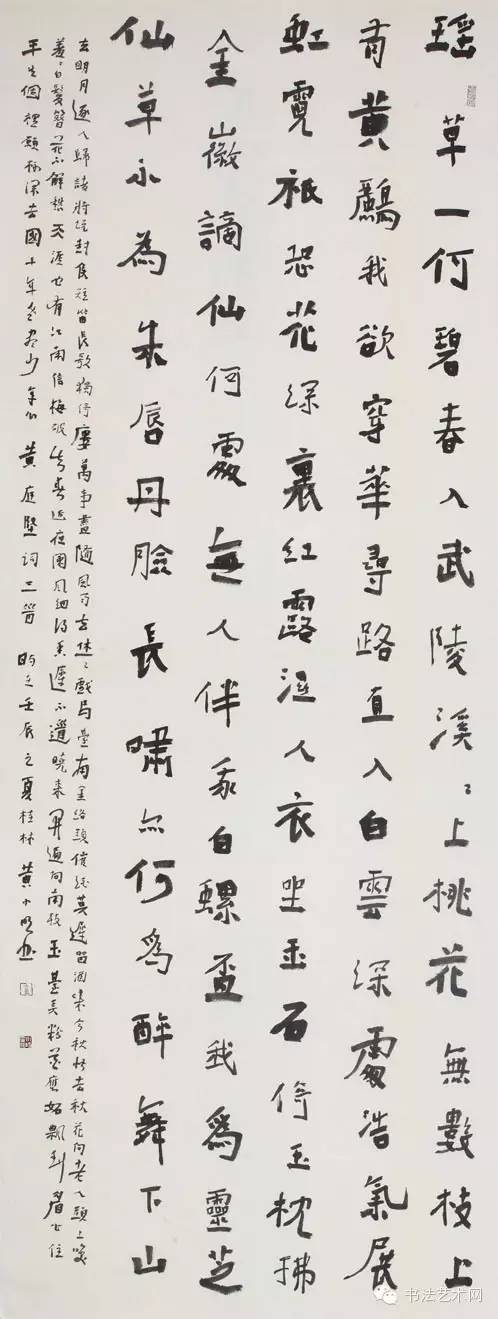 瑤草一何碧春入武陵溪〻上桃花無數枝上
有黃鸝我欲穿華尋路直入白雲深處浩氣展
虹霓祇恐花深裏紅露濕人衣坐玉石倚玉枕拂
金徽謫仙何處無人伴我白螺盃我為靈芝
仙草不為朱唇丹臉長嘯亦何為醉舞下山
去明月逐人歸諸將說封侯短笛長歌獨倚樓萬事盡隨風雨去休〻戲馬臺南金絡頭催酒莫遲留酒味今秋似去秋花向老人頭上笑
羞〻白髮簪花不解愁天涯也有江南信梅破知春近夜闌風細得香遲不道曉來開遍向南枝玉臺弄粉花應妒飄到眉心住
平生個裡願杯深去國十年老盡少年心黃庭堅詞三首壬辰之夏桂林黃小明書
书法艺术网